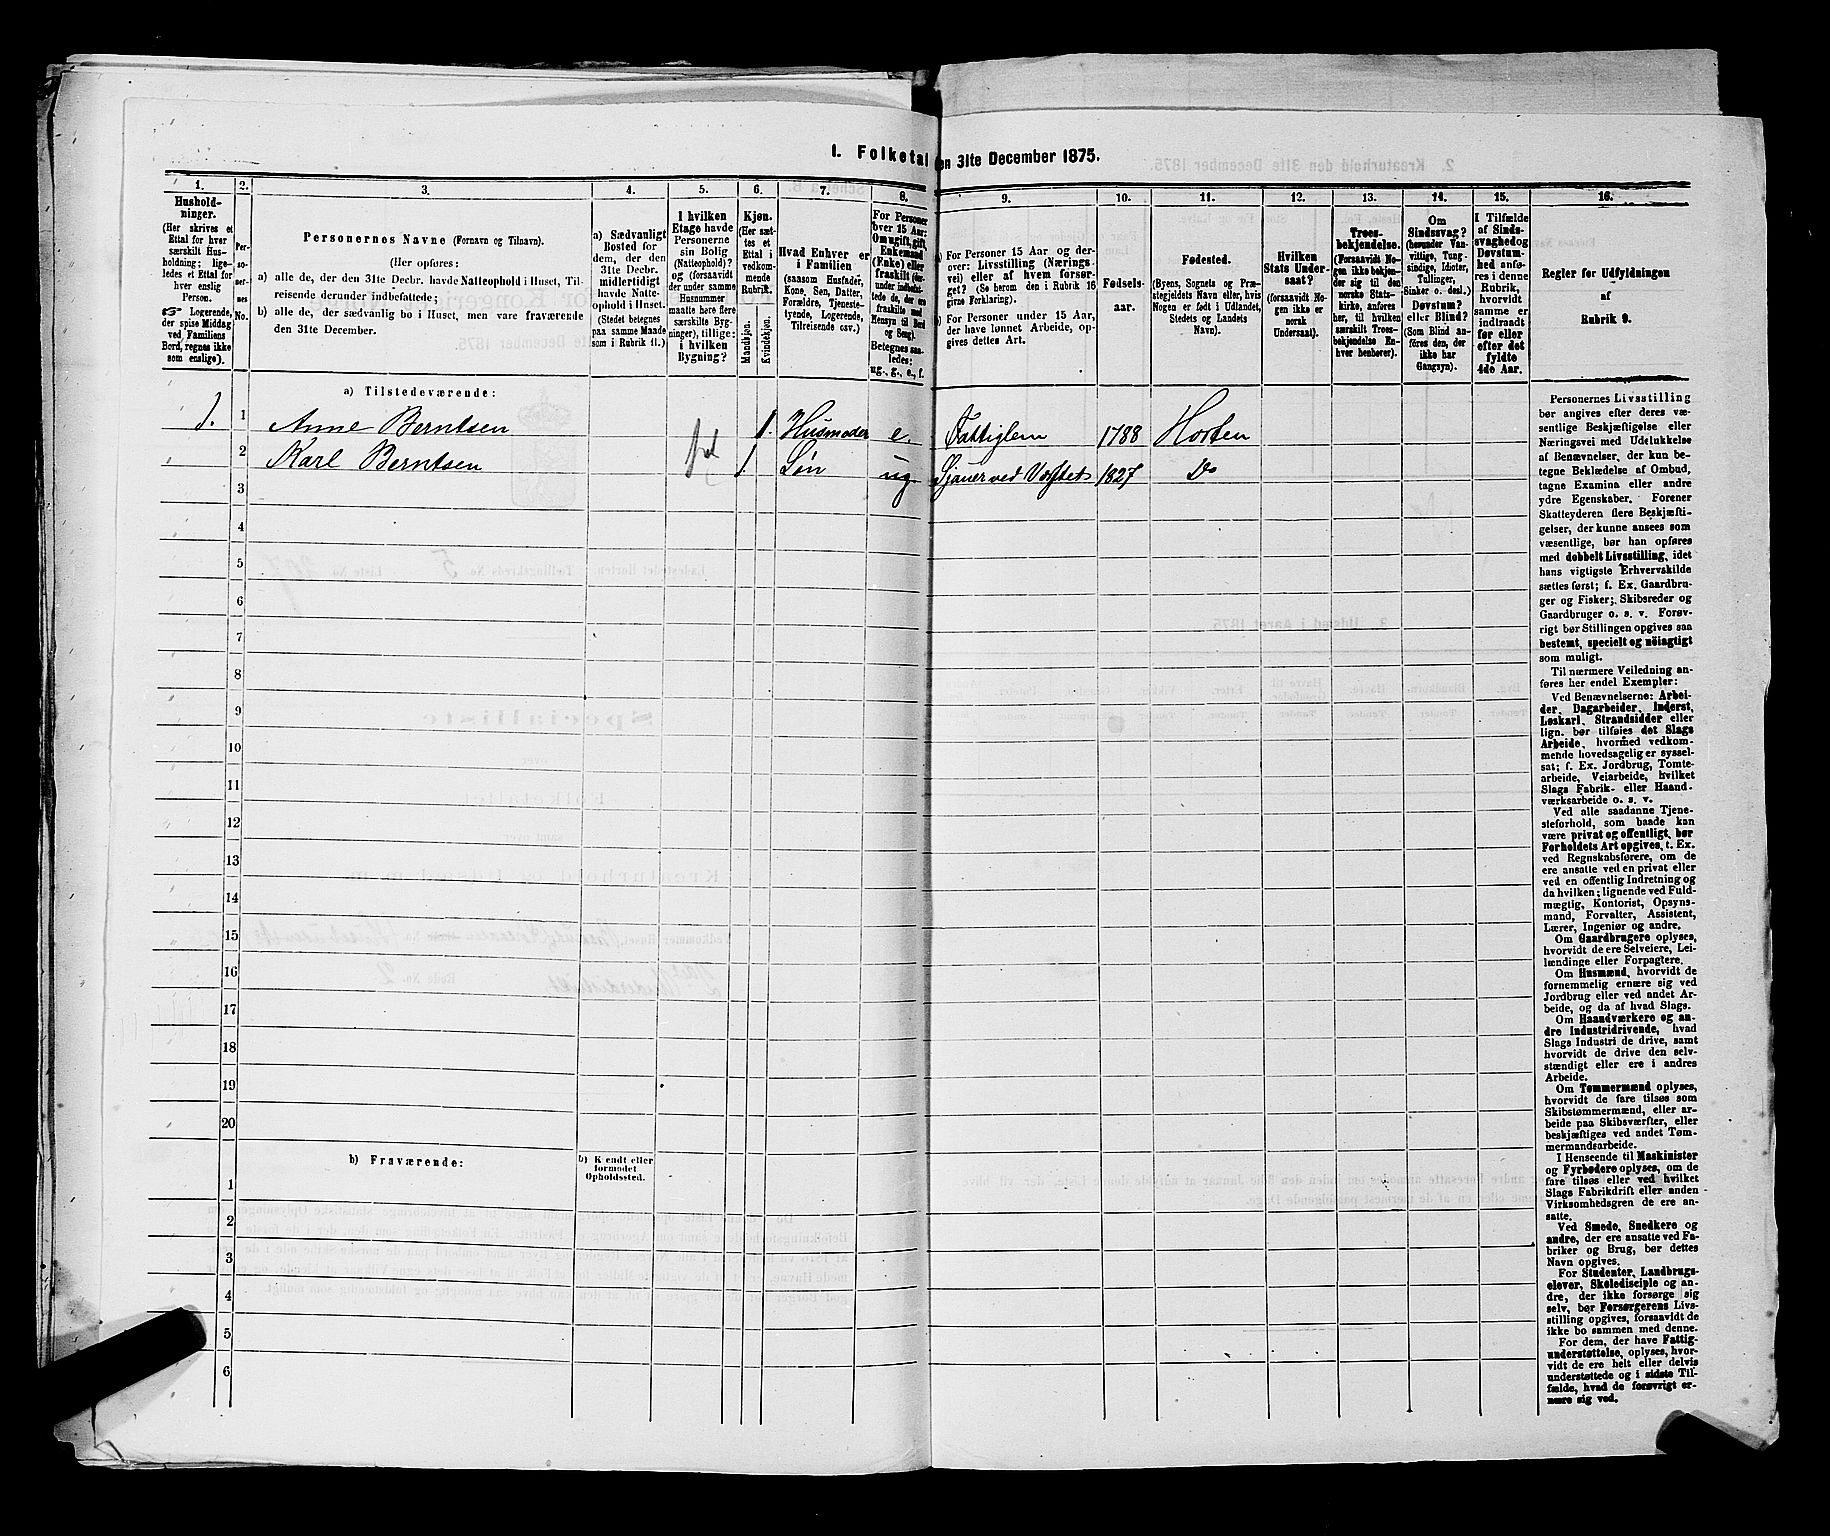 1. Folketal den 31te December 1875.
1.
Hushold-
ninger.
(Her skrives et
Ettal for hver
særskilt Hus-
holdning; lige-
ledes et Ettal for
hver enslig
Person.
☞ Logerende,
der spise Middag
ved Familiens
Bord, regnes ikke
som enslige).
2.
Per-
so-
ner-
nes
No.
3.
Personernes Navne (Fornavn og Tilnavn).
(Her opføres:
a) alle de, der den 31te Decbr. havde Natteophold i Huset, Til-
reisende derunder indbefattede;
b) alle de, der sædvanlig bo i Huset, men vare fraværende
den 31te December.
4.
a) Sædvanligt
Bosted for
dem, der den
31te Decbr.
midlertidigt
havde Natte-
ophold i Huset.
(Stedet betegnes
paa samme Maade
som i Rubrik 11.)
5.
I hvilken
Etage havde
Personerne
sin Bolig
(Natteophold)?
og (forsaavidt
der under samme
Husnummer
maatte høre flere
særskilte Byg-
ninger), tillige:
i hvilken
Bygning?
6.
Kjøn.
(Her sæt-
tes et
Ettal i
vedkom-
mende
Rubrik.
Mandkjøn.
Kvindekjøn.
7.
Hvad Enhver er
i Familien
(saasom Husfader,
Kone, Søn, Datter,
Forældre, Tjeneste-
tyende, Logerende,
Tilreisende osv.)
8.
For Personer
over 15 Aar:
Om ugift, gift,
Enkemand
(Enke) eller
fraskilt (her-
under indbefat-
tede de, der ere
fraskilte med
Hensyn til Bord
og Seng).
Betegnes saa-
ledes:
ug., g., e., f.
9.
a) For Personer 15 Aar og der-
over: Livsstilling (Nærings-
vei) eller af hvem forsør-
get? (Se herom den i Rubrik 16
givne Forklaring).
b) For Personer under 15 Aar,
der have lønnet Arbeide, op-
gives dettes Art.
10.
Fødsels-
aar.
11.
Fødested.
(Byens, Sognets og Præ-
stegjeldets Navn eller, hvis
Nogen er født i Udlandet,
Stedets og Landets
Navn).
12.
Hvilken
Stats Under-
saat?
(forsaavidt No-
gen ikke er
norsk
Undersaat).
13.
Troes-
bekjendelse.
(Forsaavidt No-
gen ikke bekjen-
der sig til den
norske Stats-
kirke, anføres
her, til hvilken
særskilt Troes-
bekjendelse En-
hver henhører).
14.
Om
Sindssvag?
(herunder Van-
vittige, Tung-
sindige, Idioter,
Tullinger,
Sinker o. desl.)
Døvstum?
eller Blind?
(Som Blind an-
føres den, der
ikke har
Gangsyn).
15.
I Tilfælde
af Sinds-
svaghed og
Døvstum-
hed anfø-
res i denne
Rubrik,
hvorvidt
samme er
indtraadt
før eller
efter det
fyldte
4de Aar.
16.
Regler for Udfyldningen
af
Rubrik 9.
a) Tilstedeværende:
1. 1 Anne Berntsen 1. Husmoder e. Fattiglem 1788 Horten
2 Karl Berntsen 1 Søn ug Sjouer ved Værftet 1827 Do
3
4
5
6
7
8
9
10
11
12
13
14
15
16
17
18
19
20
b) Fraværende:
b) Kjendt eller
formodet
Opholdssted.
1
2
3
4
5
6
Personernes Livsstilling
bør angives efter deres væ-
sentlige Beskjæftigelse eller
Næringsvei med Udelukkelse
af Benævnelser, der kun be-
tegne Beklædelse af Ombud,
tagne Examina eller andre
ydre Egenskaber. Forener
Skatteyderen flere Beskjæfti-
gelser, der kunne ansees som
væsentlige, bør han opføres
med dobbelt Livsstilling, idet
hans vigtigste Erhvervskilde
sættes først; f. Ex. Gaardbru-
ger og Fisker; Skibsreder og
Gaardbruger o. s. v. Forøv-
rigt bør Stillingen opgives saa
bestemt, specielt og nøiagtigt
som muligt.
Til nærmere Veiledning an-
føres her endel Exempler:
Ved Benævnelserne: Arbei-
der, Dagarbeider, Inderst,
Løskarl, Strandsidder eller
lign. bør tilføies det Slags
Arbeide, hvormed vedkom-
mende hovedsagelig er syssel-
sat; f. Ex. Jordbrug, Tomte-
arbeide, Veiarbeide, hvilket
Slags Fabrik- eller Haand-
værksarbeide o. s. v.
Ved alle saadanne Tjene-
steforhold, som baade kan
være privat og offentligt, bør
Forholdets Art opgives, t. Ex.
ved Regnskabsførere, om de
ere ansatte ved en privat eller
ved en offentlig Indretning og
da hvilken; lignende ved Fuld-
mægtig, Kontorist, Opsyns-
mand, Forvalter, Assistent,
Lærer, Ingeniør og andre.
Om Gaardbrugere oplyses,
hvorvidt de ere Selveiere, Lei-
lændinge eller Forpagtere.
Om Husmænd, hvorvidt de
fornemmelig ernære sig ved
Jordbrug eller ved andet Ar-
beide, og da af hvad Slags.
Om Haandværkere og an-
dre Industridrivende, hvad
Slags Industri de drive, samt
hvorvidt de drive den selv-
stændigt eller ere i andres
Arbeide.
Om Tømmermænd oplyses,
hvorvidt de fare tilsøs som
Skibstømmermænd, eller ar-
beide paa Skibsværfter, eller
beskjæftiges ved andet Tøm-
mermandsarbeide.
I Henseende til Maskinister
og Fyrbødere oplyses, om de
fare tilsøs eller ved hvilket
Slags Fabrikdrift eller anden
Virksomhedsgren de ere an-
satte.
Ved Smede, Snedkere og
andre, der ere ansatte ved Fa-
briker og Brug, bør dettes
Navn opgives.
For Studenter, Landbrugs-
elever, Skoledisciple og an-
dre, der ikke forsørge sig
selv, bør Forsørgerens Livs-
stilling opgives, forsaavidt de
ikke bo sammen med denne.
For dem, der have Fattig-
understøttelse, oplyses, hvor-
vidt de ere helt eller delvis
understøttede og i sidste Til-
fælde, hvad de forøvrigt er-
nære sig ved.